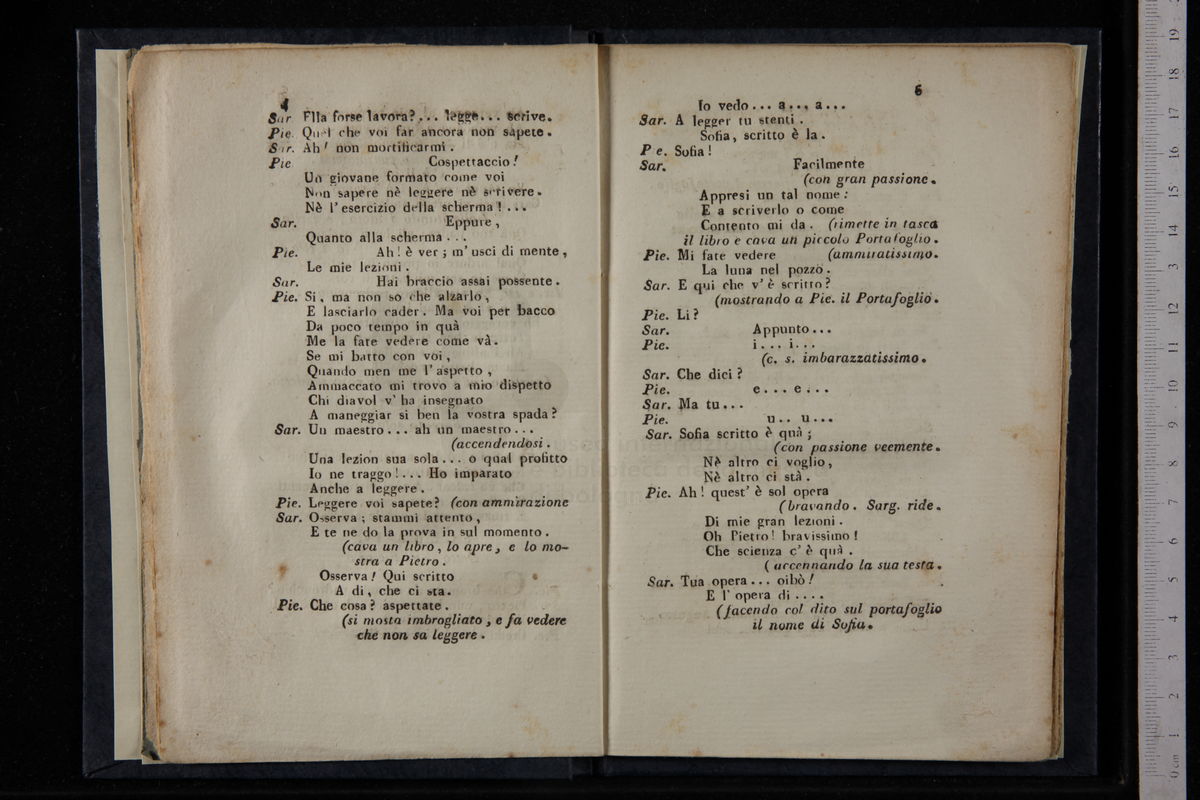 4
Sar Ella forse lavora?... legge... scrive.
Pie. Quel che voi far ancora non sapete.
Sar. Ah! non mortificarmi.
Pie Cospettaccio!
Un giovane formato come voi
Non sapere nè leggere nè scrivere.
Nè l'esercizio della scherma!...
Sar. Eppure,
Quanto alla scherma...
Pie. Ah! è ver; m'usci di mente,
Le mie lezioni.
Sar. Hai braccio assai possente.
Pie. Si, ma non so che alzarlo,
E lasciarlo cader. Ma voi per bacco
Da poco tempo in quà
Me la fate vedere come và.
Se mi batto con voi,
Quando men me l'aspetto,
Ammaccato mi trovo a mio dispetto
Chi diavol v'ha insegnato
A maneggiar si ben la vostra spada?
Sar. Un maestro... ah un maestro...
(accendendosi.
Una lezion sua sola... o qual profitto
Io ne traggo!... Ho imparato
Anche a leggere.
Pie. Leggere voi sapete? (con ammirazione
Sar. Osserva; stammi attento,
E te ne do la prova in sul momento.
(cava un libro, lo apre, e lo mo-
stra a Pietro.
Osserva! Qui scritto
A di, che ci sta.
Pie. Che cosa? aspettate.
(si mosta imbrogliato, e fa vedere
che non sa leggere.
6
Io vedo... a... a...
Sar. A legger tu stenti.
Sofia, scritto è la.
P e. Sofia!
Sar. Facilmente
(con gran passione.
Appresi un tal nome:
E a scriverlo o come
Contento mi da. (rimette in tasca
il libro e cava un piccolo Portafoglio.
Pie. Mi fate vedere (ammiratissimo.
La luna nel pozzo.
Sar. E qui che v'è scritto?
(mostrando a Pie. il Portafoglio.
Pie. Li?
Sar. Appunto...
Pie. i... i...
(c. s. imbarazzatissimo.
Sar. Che dici?
Pie. e... e...
Sar. Ma tu...
Pie. u.. u...
Sar. Sofia scritto è quà;
(con passione veemente.
Nè altro ci voglio,
Nè altro ci stà.
Pie. Ah! quest'è sol opera
(bravando. Sarg. ride.
Di mie gran lezioni.
Oh Pietro! bravissimo!
Che scienza c'è quà.
(accennando la sua testa.
Sar. Tua opera... oibò!
E l'opera di....
(facendo col dito sul portafoglio
il nome di Sofia.
0 cm 1 2 3 4 5 6 7 8 9 10 11 12 13 14 15 16 17 18 19